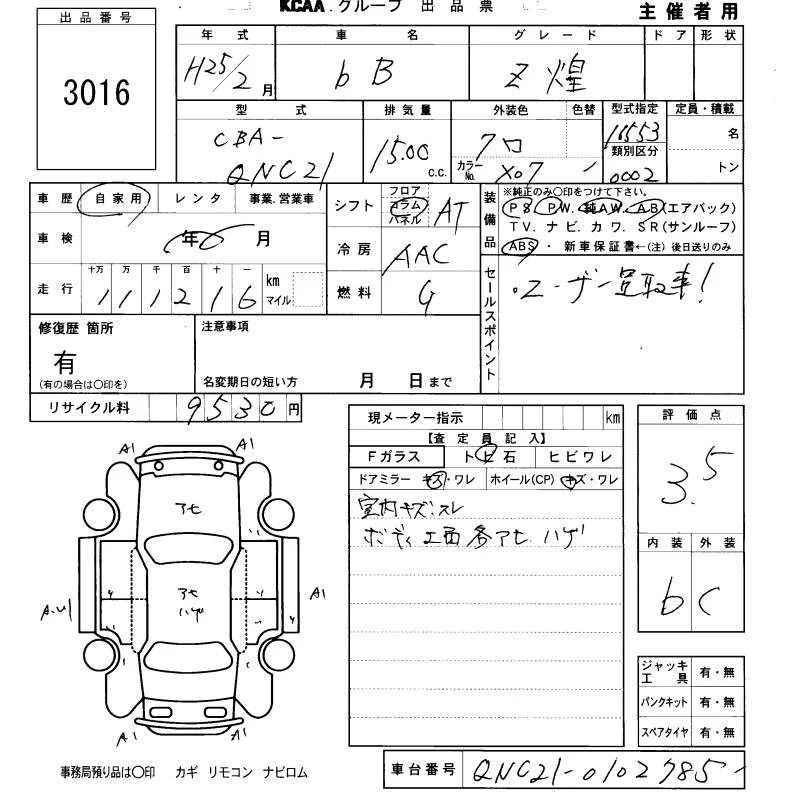 KCAA.グループ 出品票
主催者用
出品番号
3016
年式 車名 グレード ドア 形状
H25/2月 bB Z 煌
型式 排気量 外装色 色替 型式指定 定員・積載
CBA-
QNC21
1500 c.c.
クロ
カラーNo. X07
16553
類別区分
0002
名
トン
車歴 自家用 レンタ 事業.営業車
車検 年6月
走行 十万 万 千 百 十 一
111216 km
マイル
シフト フロア コラム パネル AT
冷房 AAC
燃料 G
装備品
※純正のみ○印をつけて下さい。
PS. PW. 純AW. AB(エアバック)
TV. ナビ. カワ. SR(サンルーフ)
ABS・新車保証書←(注)後日送りのみ
セールスポイント
・ユーザー買取車!
修復歴 箇所
有
(有の場合は○印を)
注意事項
名変期日の短い方 月 日まで
リサイクル料 9530円
現メーター指示 km
【査定員記入】
Fガラス トビ石 ヒビワレ
ドアミラー キズ・ワレ ホイール(CP) キズ・ワレ
室内キズ.スレ
ボディ工面各アセ ハゲ
評価点
3.5
内装 外装
b C
A1 A1
アセ
アセ
ハゲ
A1
A1 A1
ジャッキ
工具 有・無
パンクキット 有・無
スペアタイヤ 有・無
事務局預り品は○印 カギ リモコン ナビロム
車台番号 QNC21-0102785